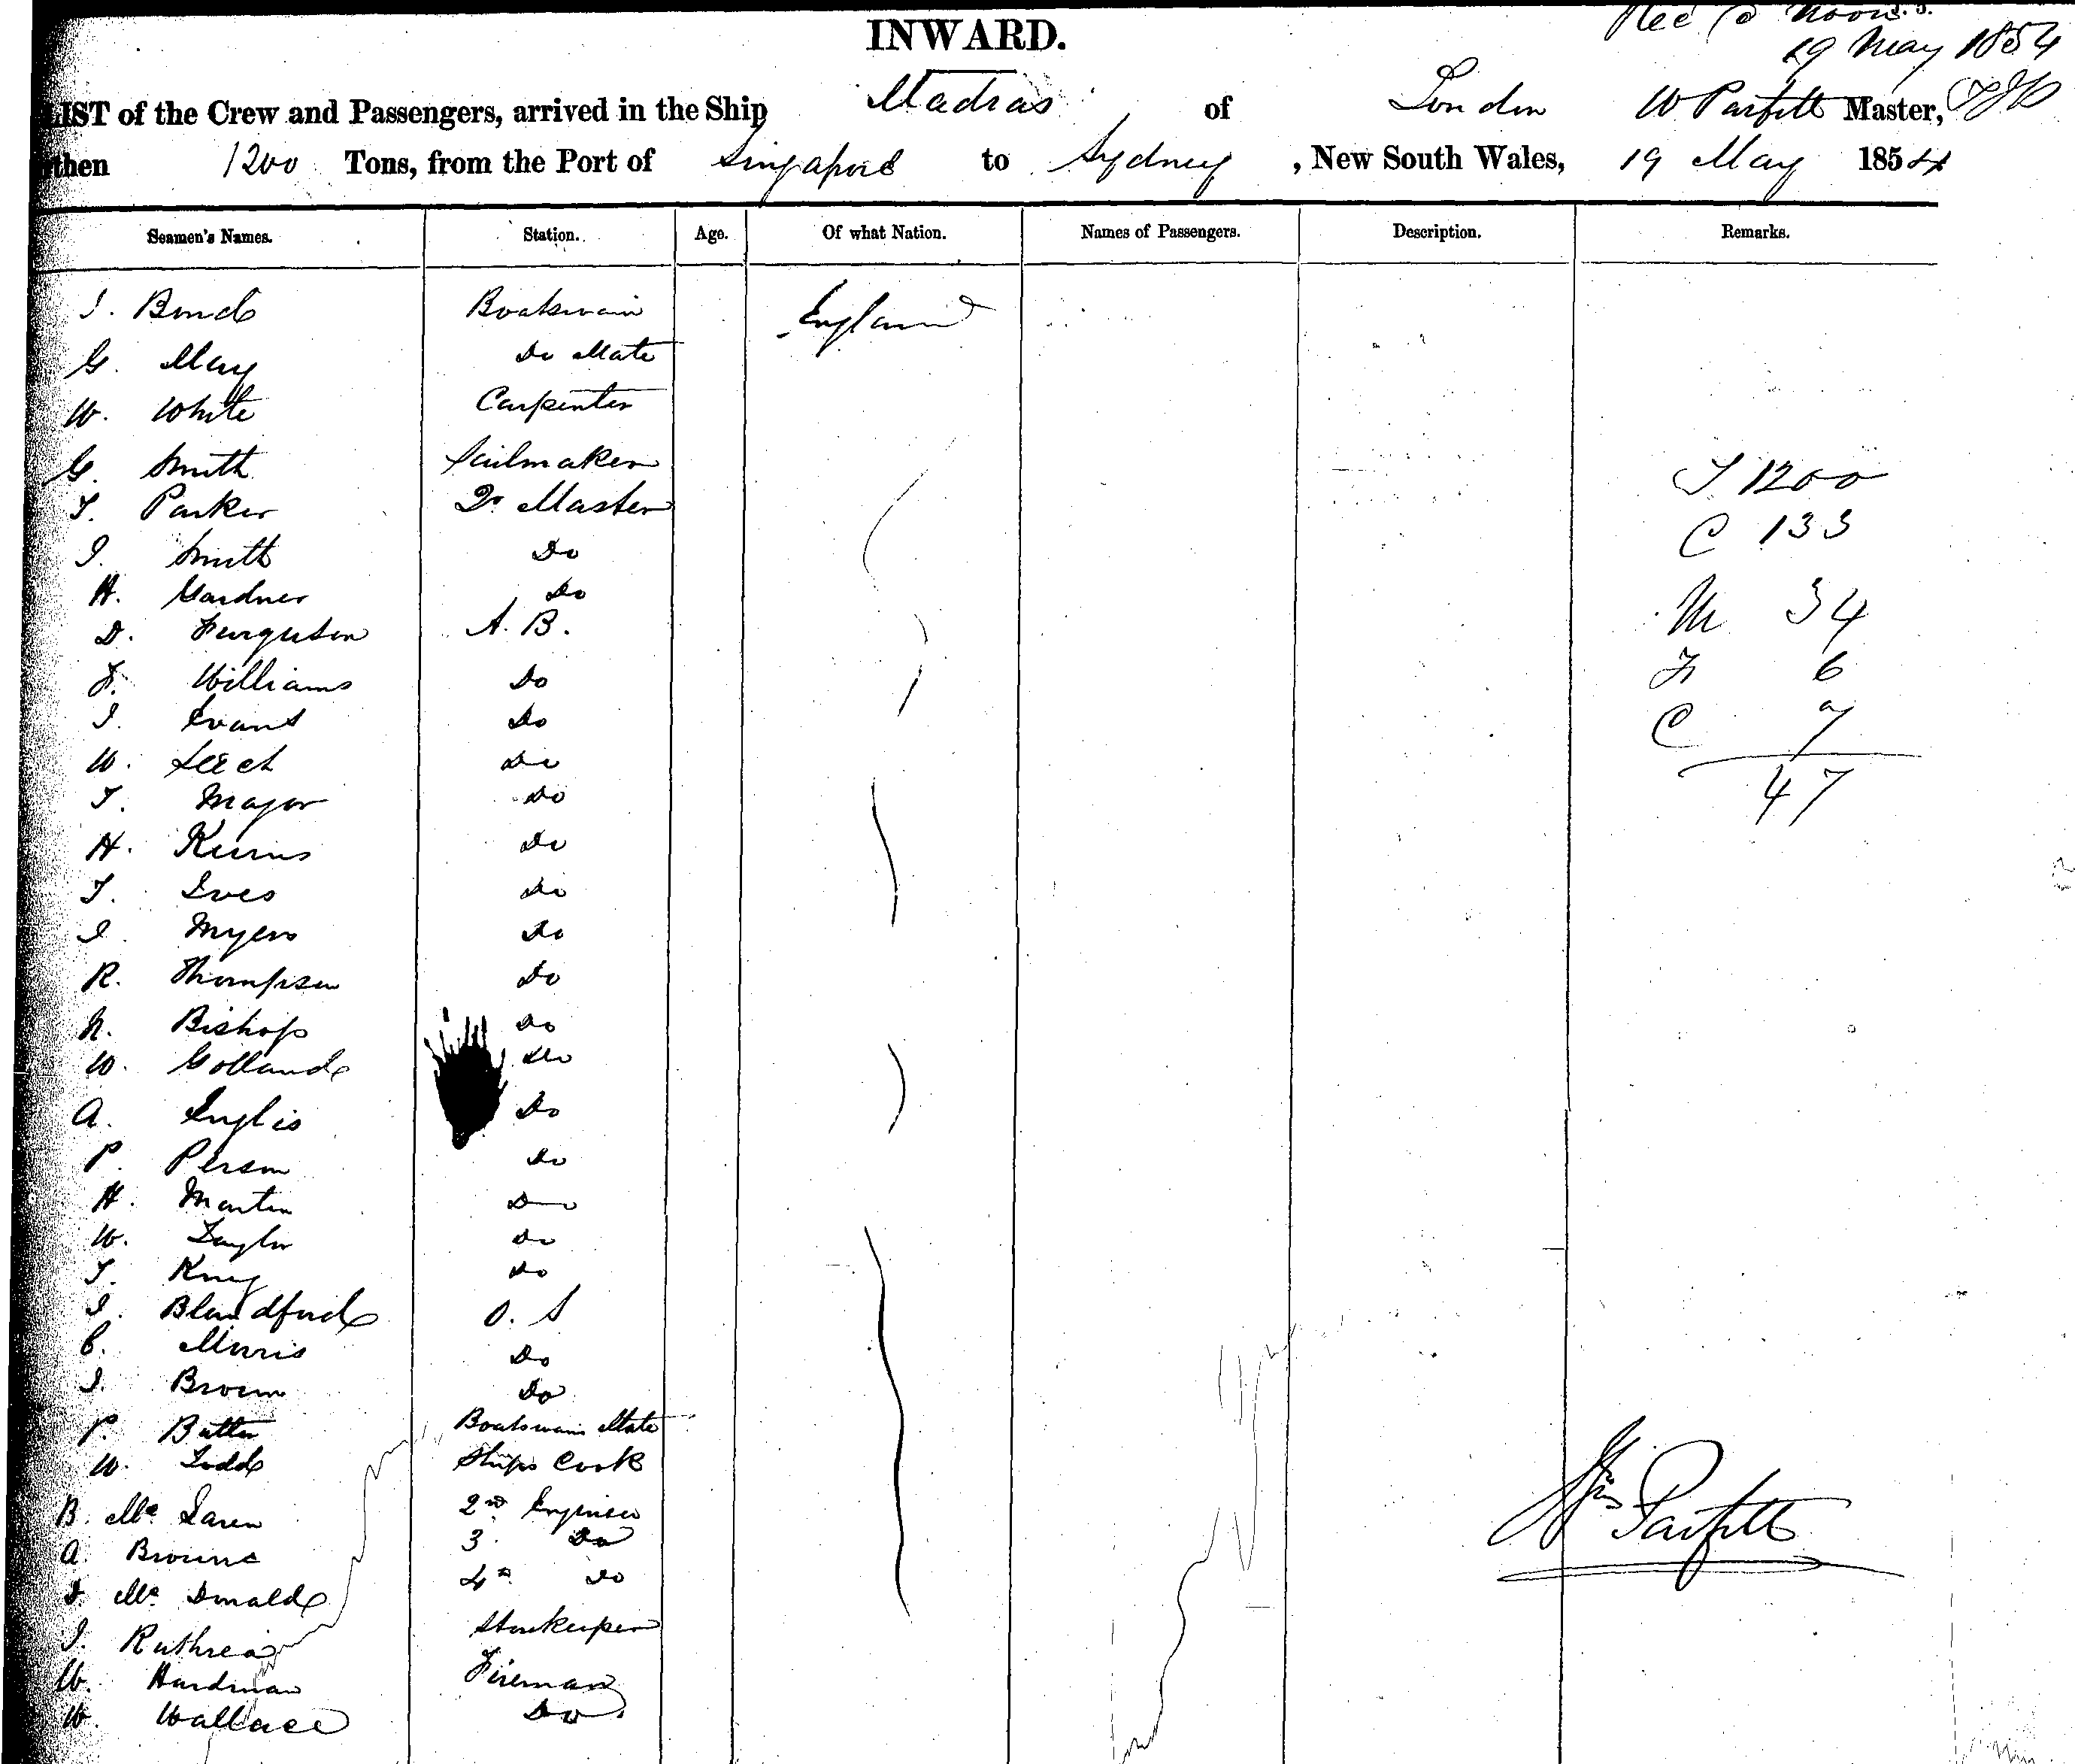 INWARD.
Rec @ Noon
19 May 1854
LIST of the Crew and Passengers, arrived in the Ship Madras of London W Parfitt Master,
then 1200 Tons, from the Port of Singapore to Sydney, New South Wales, 19 May 1854
Seamen's Names. Station. Age. Of what Nation. Names of Passengers. Description. Remarks.
I. Bond Boatswain England
G. May Do Mate
W. White Carpenter
G. Smith Sailmaker T 1200
T. Parker Qr Master
I. Smith Do C 133
H. Gardner Do M 34
D. Ferguson A. B.
F. Williams Do F 6
I. Evans Do C 7
W. Leech Do
T. Major Do 47
H. Kurns Do
T. Ives Do
I. Myers Do
R. Thompson Do
N. Bishop Do
W. Golland Do
A. Inglis Do
P. Person Do
H. Martin Do
W. Taylor Do
T. King Do
I. Blandford O. S
C. Morris Do
I. Brown Do
P. Butler Boatswain Mate
W. Todd Ships Cook
B. Mc Laren 2nd Engineer
A. Browne 3 Do Wm Parfitt
Mc Donald 4th Do
I. Storekeeper
W. Hardman Fireman
W. Wallace Do